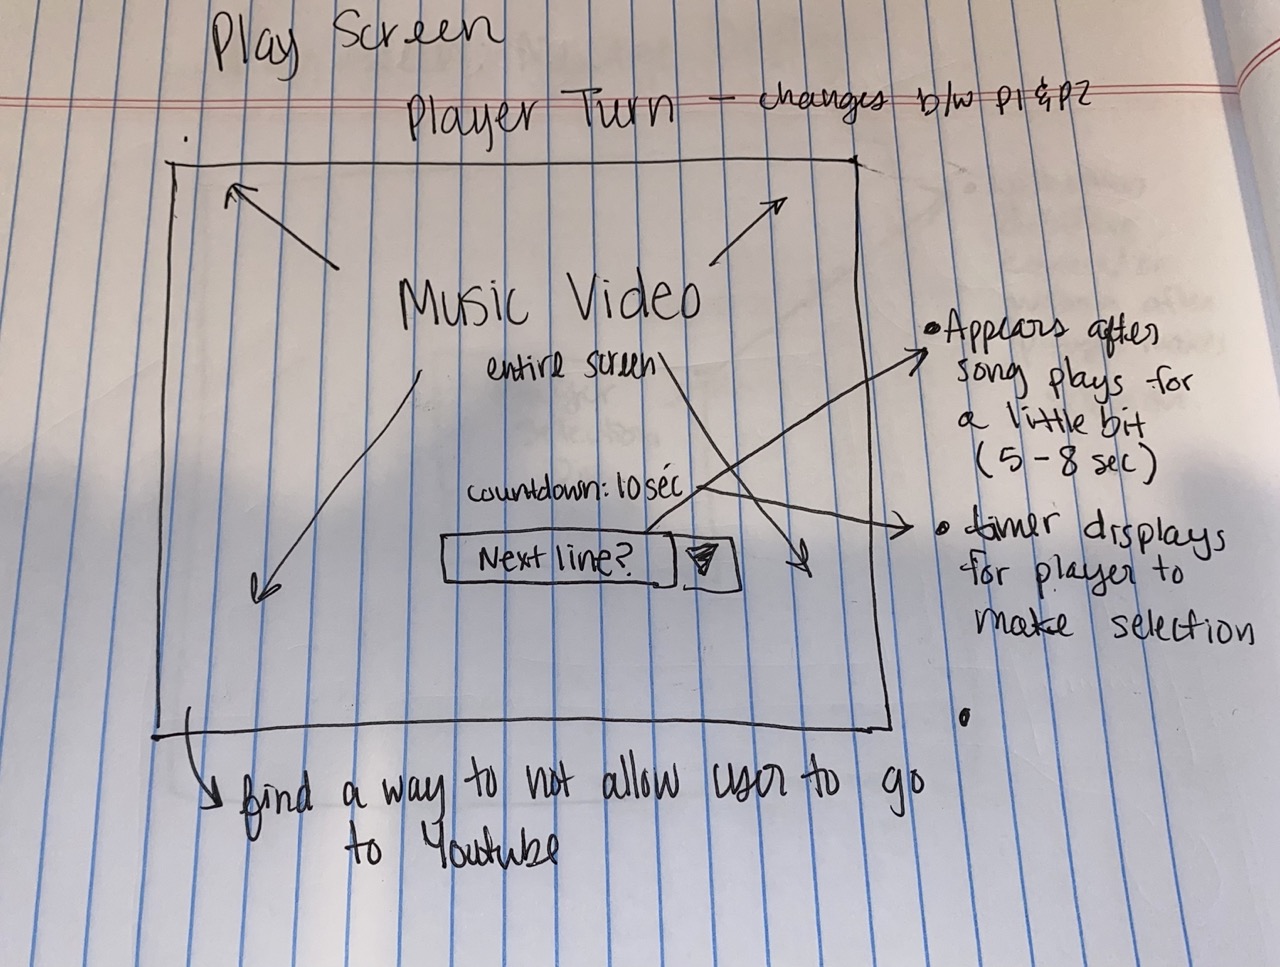 Play Screen
Player Turn - changes b/w p1 & p2
Music Video
entire screen
countdown: 10 sec
Next line?
• Appears after
song plays for
a little bit
(5-8 sec)
• timer displays
for player to
make selection
•
find a way to not allow user to go
to Youtube